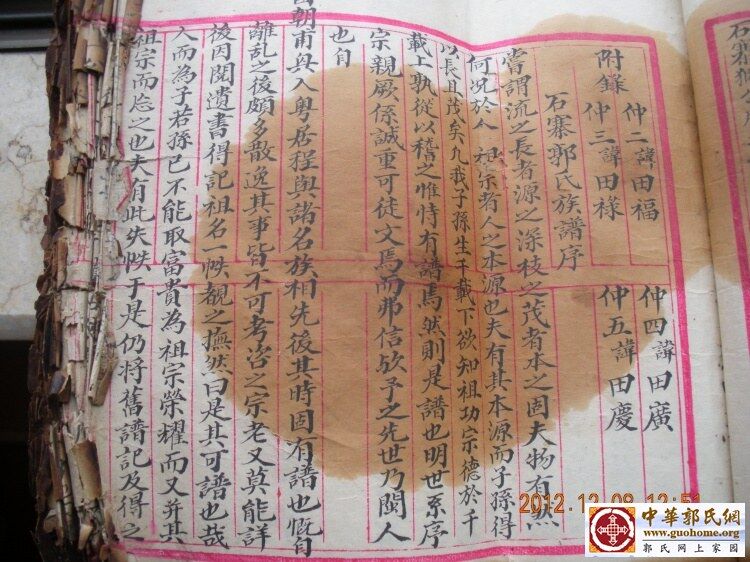 附錄 仲二諱田福 仲四諱田廣
仲三諱田祿 仲五諱田慶
石寨郭氏族譜序
嘗謂流之長者源之深枝之茂者本之固夫物有然
何況於人 祖宗者人之本源也夫有其本源而子孫得
以長且茂矣凡我子孫生千載下欲知祖功宗德於千
載上孰從以稽之惟恃有譜焉然則是譜也明世系序
宗親厥係誠重可徒文焉而弗信欤予之先世乃閩人
也自
朝甫與入粵居程與諸名族相先後其時固有譜也慨自
離亂之後頗多散逸其事皆不可考咨之宗老又莫能詳
後因閱遺書得記祖名一帙覩之撫然曰是其可譜也哉
人而為子若孫已不能取富貴為祖宗榮耀而又并其
祖宗而忘之也夫有此失帙于是仍將舊譜記及得之
石寨
2012.12.09 12:51
中華郭氏網
www.guohome.org
郭氏网上家园